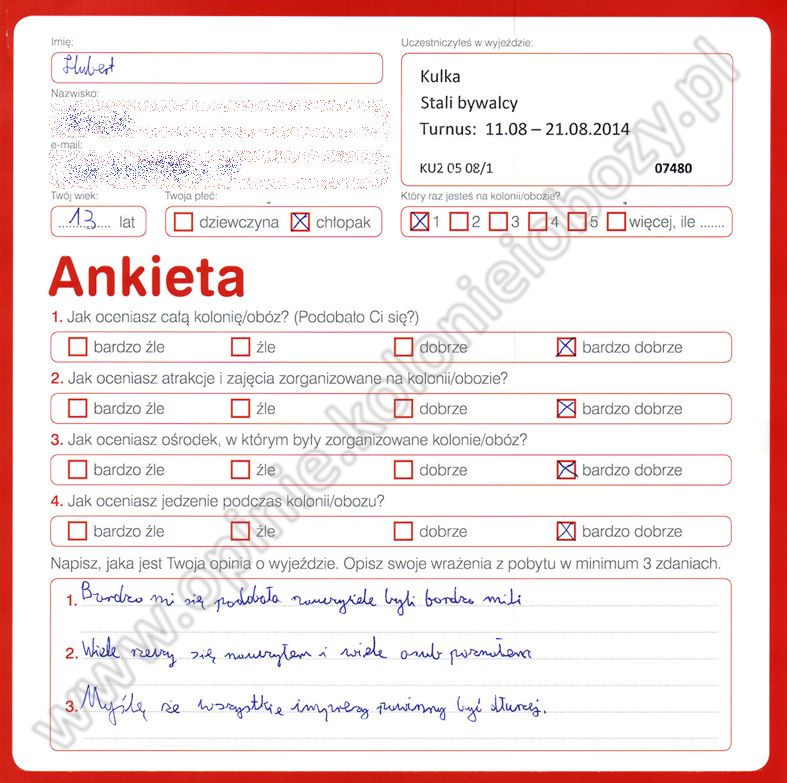 Imię:
Hubert
Uczestniczyłeś w wyjeździe:
Kulka
Stali bywalcy
Turnus: 11.08 – 21.08.2014
KU2 05 08/1 07480
Nazwisko:
e-mail:
Twój wiek:
13 lat
Twoja płeć:
dziewczyna chłopak
Który raz jesteś na kolonii/obozie?
1 2 3 4 5 więcej, ile .......
Ankieta
1. Jak oceniasz całą kolonię/obóz? (Podobało Ci się?)
bardzo źle źle dobrze bardzo dobrze
2. Jak oceniasz atrakcje i zajęcia zorganizowane na kolonii/obozie?
bardzo źle źle dobrze bardzo dobrze
3. Jak oceniasz ośrodek, w którym były zorganizowane kolonie/obóz?
bardzo źle źle dobrze bardzo dobrze
4. Jak oceniasz jedzenie podczas kolonii/obozu?
bardzo źle źle dobrze bardzo dobrze
Napisz, jaka jest Twoja opinia o wyjeździe. Opisz swoje wrażenia z pobytu w minimum 3 zdaniach.
1. Bardzo mi się podobała nauczyciele byli bardzo mili
2. Wiele rzeczy się nauczyłem i wiele osub poznałem
3. Myślę że wszystkie imprezy powinny być dłurzej.
www.opinie.kolonieiobozy.pl